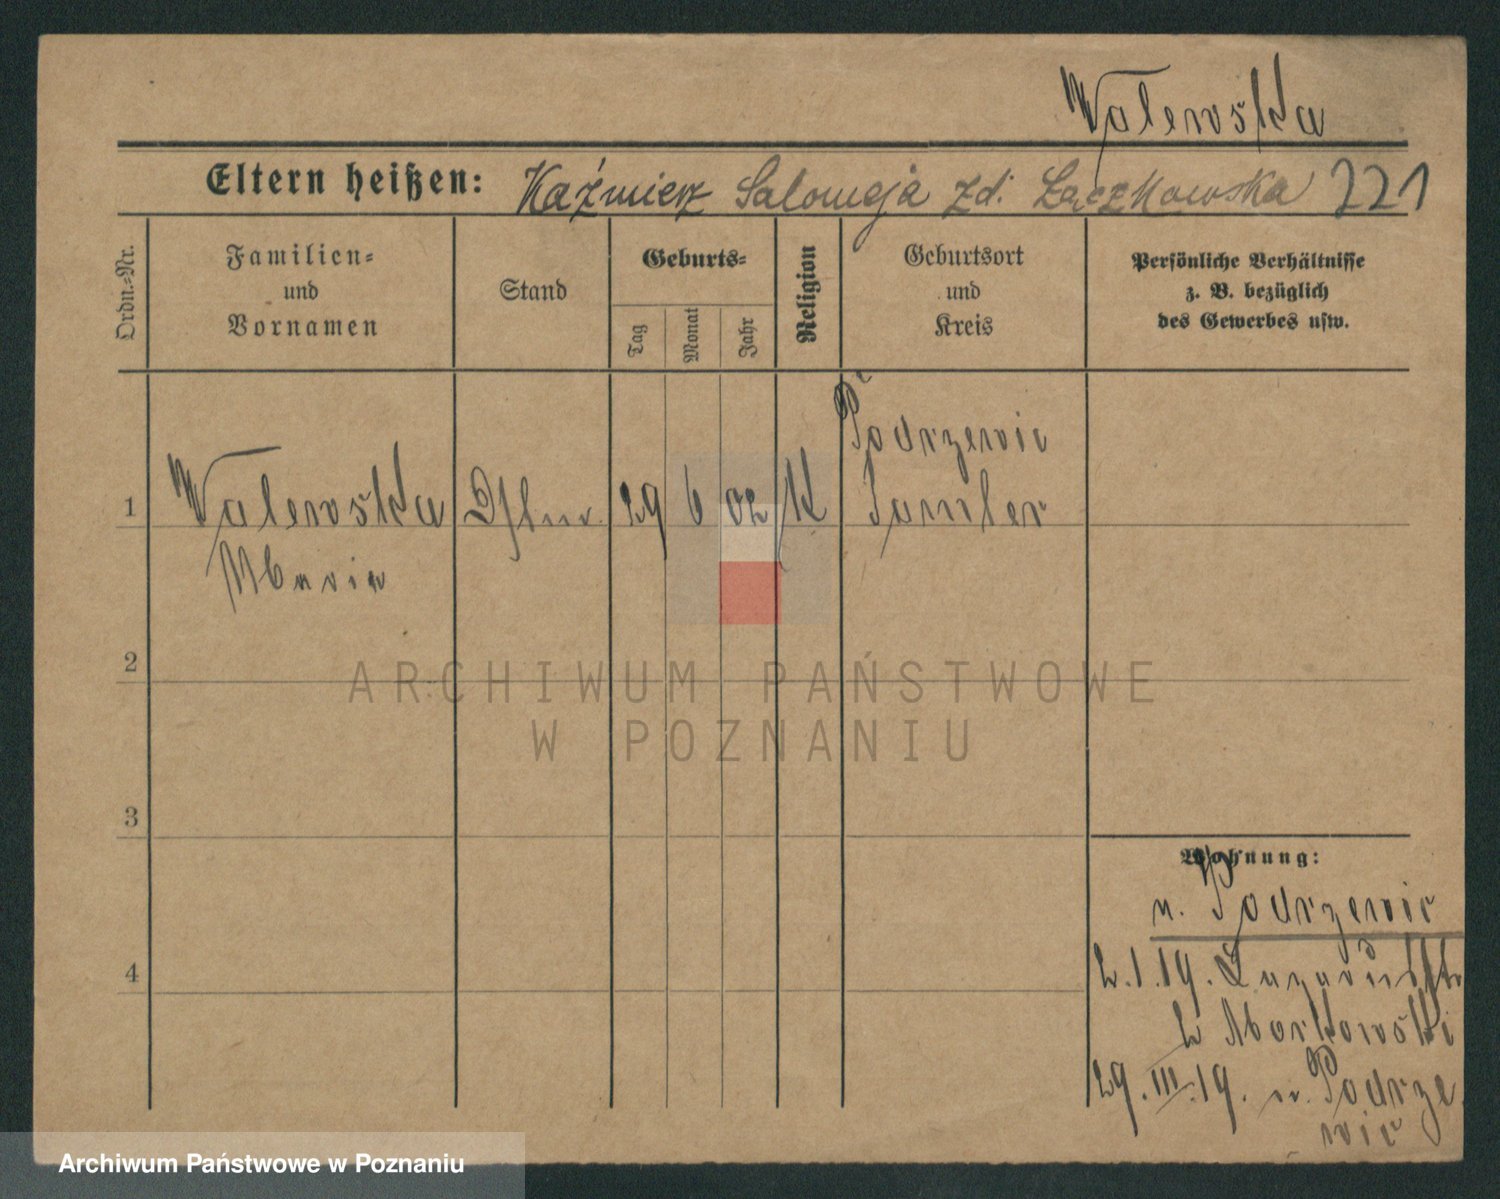 Walewska
Eltern heißen: Kaźmierz Salomeja zd. Łączkowska 221
Ordn.-Nr.
Familien-
und
Vornamen
Stand
Geburts-
Tag
Monat
Jahr
Religion
Geburtsort
und
Kreis
Persönliche Verhältnisse
z. B. bezüglich
des Gewerbes usw.
Podrzewie
1 Walewska 29 6 02 K Samter
Maria
2
ARCHIWUM PAŃSTWOWE
W POZNANIU
3
Wohnung:
n. Podrzewie
4
2.1.19. Lazarusstr
2 Markowski
29.III.19. n. Podrze
wie
Archiwum Państwowe w Poznaniu